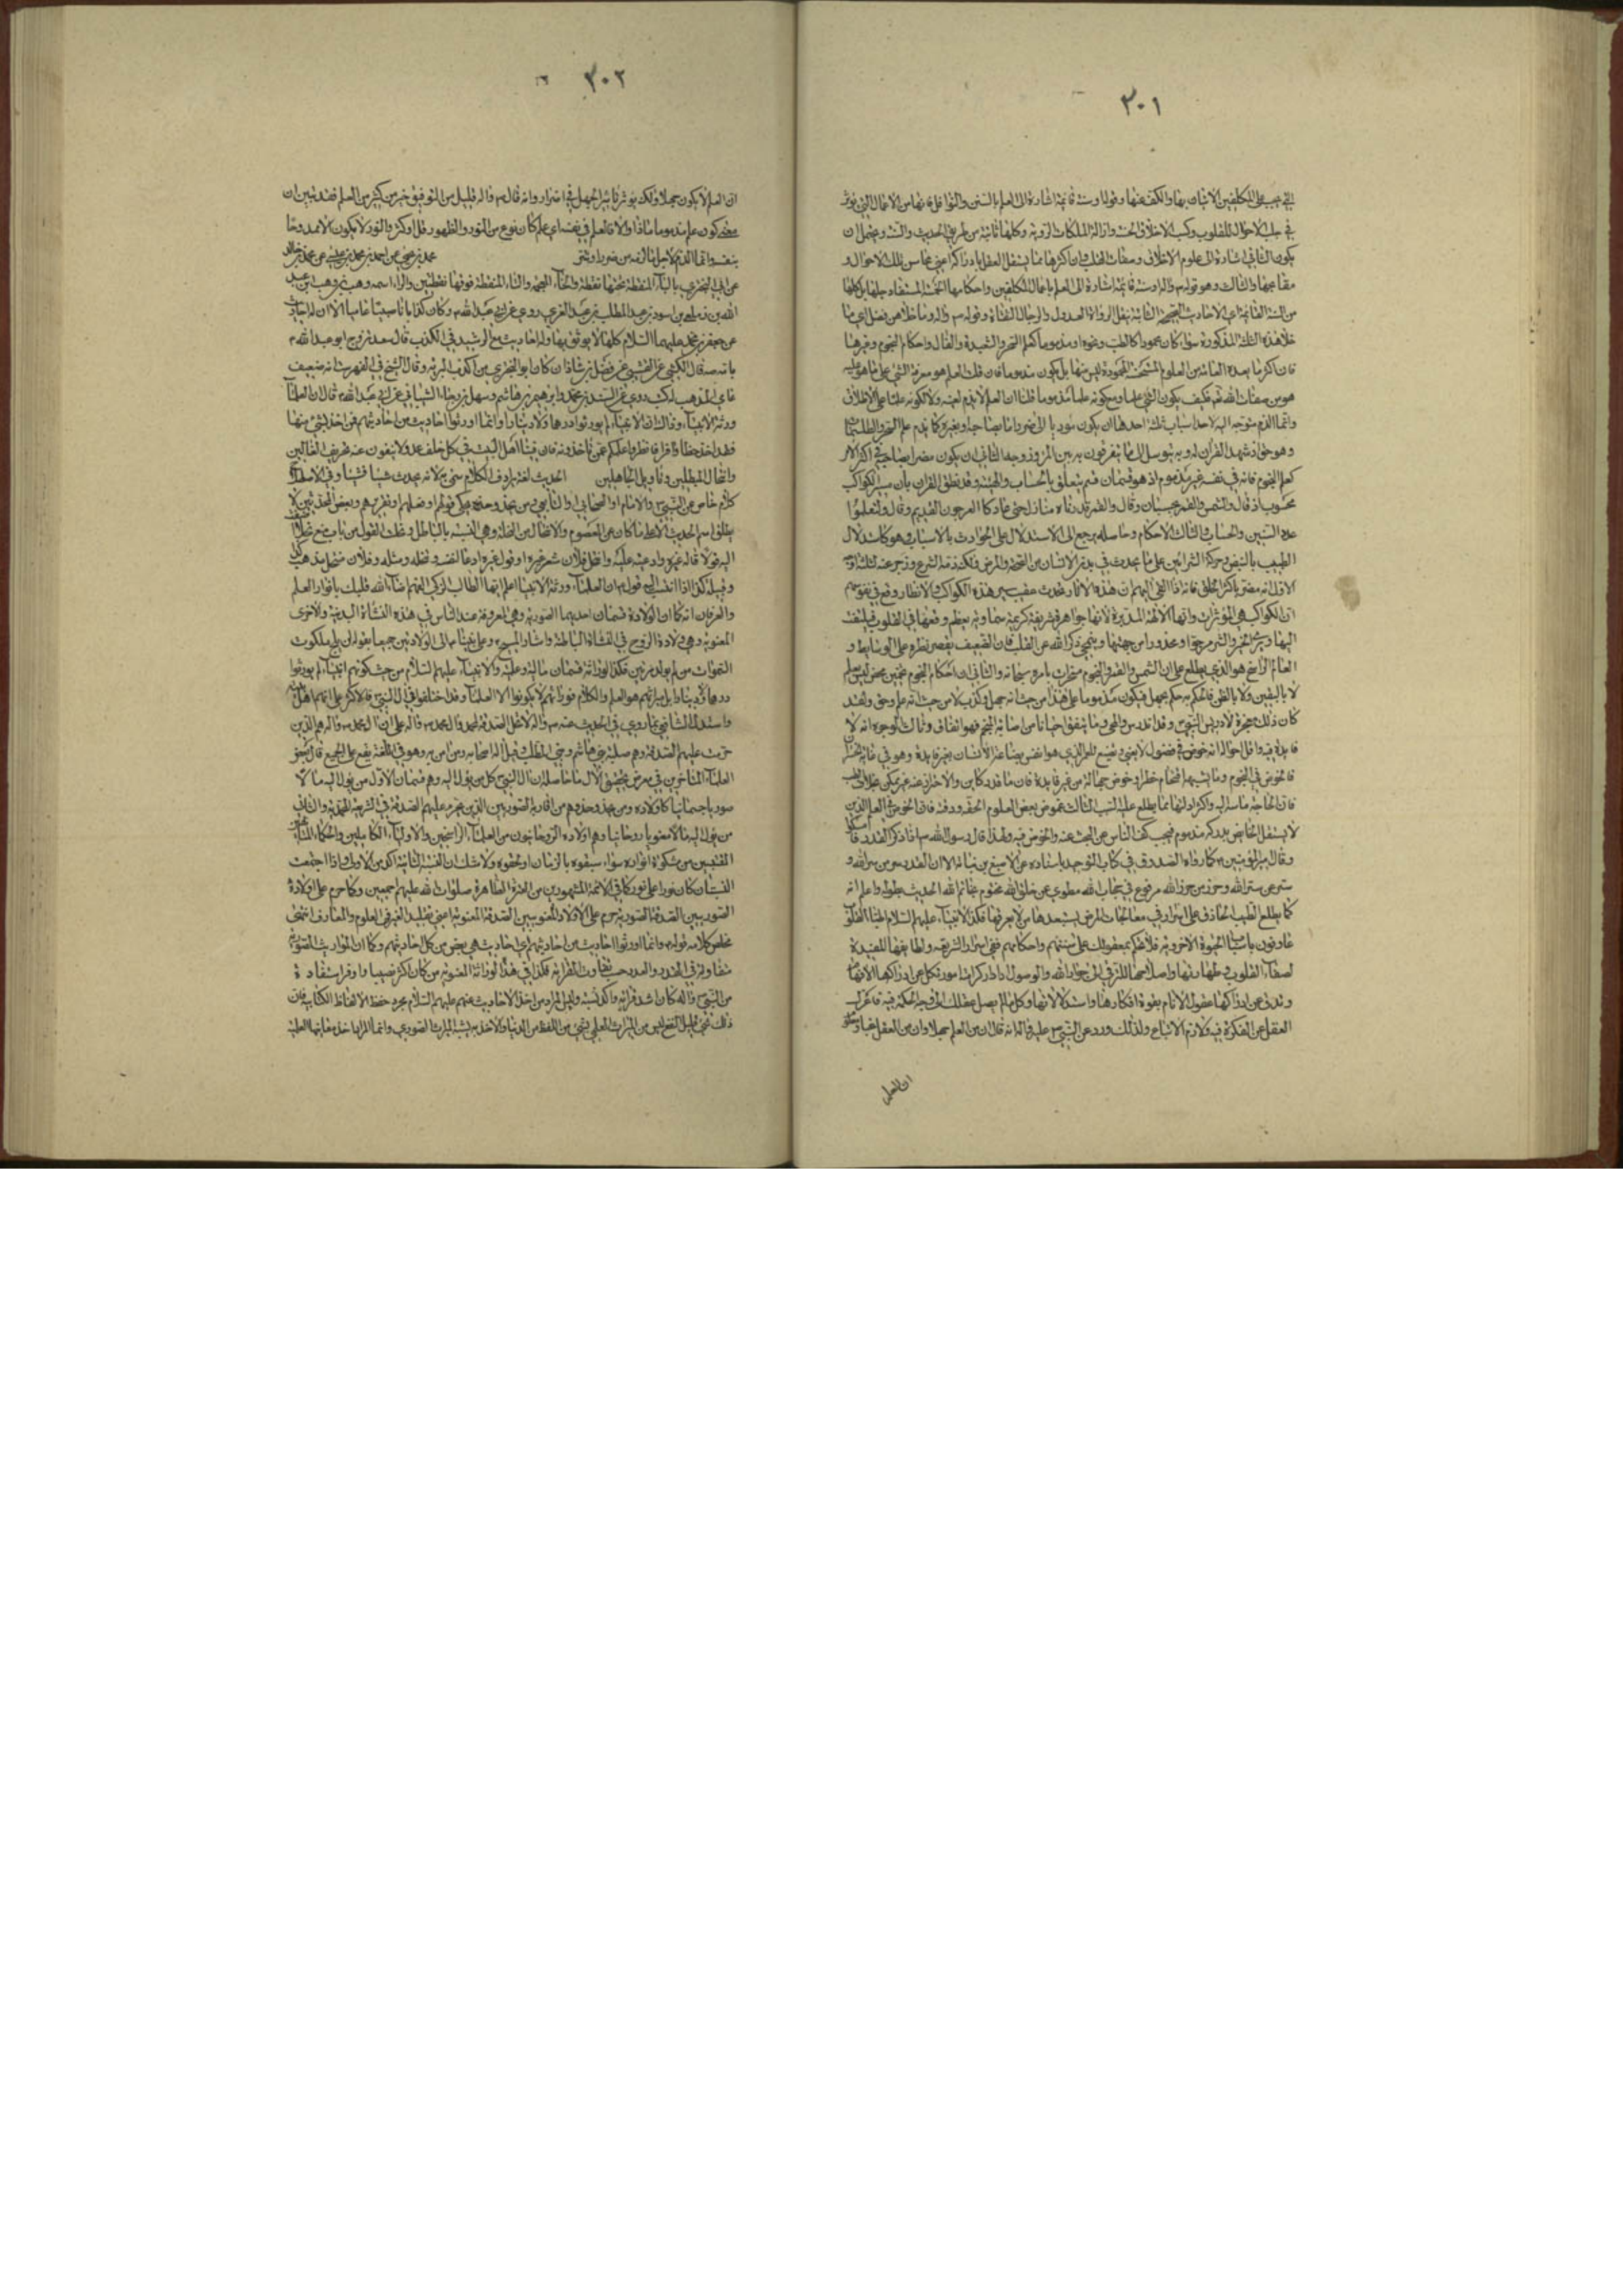 ٣٠١
التي يجب على المكلفين الاتيان بها والكف عنها وقوله او سنة قائمة اشارة الى العلم بالسنن والنوافل فانها من الاعمال التي توثر
في جلب الاحوال للقلوب وكسب الاخلاق الحسنة وازالة الملكات الردية وكلها ثابتة من طريق الحديث والسنة ويحتمل ان
يكون الثاني اشارة الى علوم الاخلاق وصفات القلب فان اكثرها مما يستقل العقل بادراك اعني محاسن تلك الاحوال و
مقابحها والثالث وهو قوله ص واله او سنة قائمة اشارة الى العلم باعمال المكلفين واحكامها الخمسة المستفاد جلها بل كلها
من السنة القائمة اي الاحاديث الصحيحة الثابتة بنقل الرواة العدول والرجال الثقاة وقوله ص واله وما خلاهن فضل اي ما
خلا هذه الثلثة المذكورة سواء كان محمودا كالطب ونحوه او مذموما كعلم السحر والشعبدة والفال واحكام النجوم وغيرها
فان اكثر ما يعده العامة من العلوم المستحسنة المحمودة ليس منها بل يكون مذموما فان قلت العلم هو معرفة الشيء على ما هو عليه
هو من صفات الله تعالى فكيف يكون الشيء علما ومع كونه علما مذموما قلنا ان العلم لا يذم لعينه ولا لكونه علما على الاطلاق
وانما الذم متوجه اليه لاحد اسباب ثلثة احدها ان يكون مؤديا الى ضرر اما بصاحبه او بغيره كما يذم علم السحر والطلسمات
وهو حق اذ شهد القران له وبه يتوسل الى ما يفرقون به بين المرء وزوجه الثاني ان يكون مضرا بصاحبه في اكثر الامر
كعلم النجوم فانه في نفسه غير مذموم اذ هو قسمان قسم يتعلق بالحساب والهيئة وقد نطق القران بان سير الكواكب
محسوب اذ قال والشمس والقمر بحسبان وقال والقمر قدرناه منازل حتى عاد كالعرجون القديم وقال ولتعلموا
عدد السنين والحساب والثاني الاحكام وحاصله يرجع الى الاستدلال على الحوادث بالاسباب وهو كاستدلال
الطبيب بالنبض وحركة الشرائين على ما يحدث في بدن الانسان من الصحة والمرض ولكن ذمه الشرع وزجر عنه لثلثة اوجه
الاول انه مضر باكثر الخلق فانه اذا القي اليهم ان هذه الاثار تحدث عقيب سير هذه الكواكب والانظار وقع في نفوسهم
ان الكواكب هي المؤثرات وانها الالهة المدبرة لانها جواهر شريفة كريمة سماوية يعظم وقعها في القلوب فيلتفت
اليها ويرى الخير والشر مرجوا ومحذورا من جهتها وينمحي ذكر الله عن القلب فان الضعيف يقصر نظره على الوسايط و
العالم الراسخ هو الذي يطلع على ان الشمس والقمر والنجوم مسخرات بامره سبحانه والثاني ان احكام النجوم تخمين محض ليس يعلم
لا باليقين ولا بالظن فالحكم به حكم بجهل فيكون مذموما على هذا من حيث انه جهل وكذب لا من حيث انه علم وحق ولقد
كان ذلك معجزة لادريس النبي ع وقد اندرس وانمحى وما يتفق احيانا من اصابة المنجم فهو اتفاق وثالث الوجوه انه لا
فايدة فيه واقل احواله انه خوض في فضول لا يعني وتضييع للعمر الذي هو انفس بضاعة الانسان بغير فايدة وهو في غاية الخسران
فالخوض في النجوم وما يشبهها اقتحام خطر وخوض جهالة من غير فايدة فان ما قدر كاين والاحتراز عنه غير ممكن بخلاف الطب
فان الحاجة ماسة اليه واكثر ادلتها مما يطلع عليه السبب الثالث غموض بعض العلوم الحقة ودقته فان الخوض في العلم الذي
لا يستقل الخايض بدركه مذموم فيجب كف الناس عن البحث عنه والخوض فيه ولهذا قال رسول الله ص اذا ذكر القدر فامسكوا
وقال امير المؤمنين ع كما رواه الصدوق في كتاب التوحيد باسناده عن الاصبغ بن نباتة الا ان القدر سر من سر الله و
ستر من ستر الله وحرز من حرز الله مرفوع في حجاب الله مطوي عن خلق الله مختوم بخاتم الله الحديث بطوله واعلم انه
كما يطلع الطبيب الحاذق على اسرار في معالجات المرضى يستبعدها من لا يعرفها فكذا الانبياء عليهم السلام اطباء القلوب
عارفون باسباب الحيوة الاخروية فلا تتحكم بمعقولك على سننهم واحكامهم ففي اسرار الشريعة ولطايفها المفيدة
لصفاء القلوب وطهارتها واصلاحها للترقي الى جوار الله والوصول الى دار كرامته امور تكل عن ادراكها الافهام
وتدق عن ادراكها عقول الانام بقوة افكارها واستدلالاتها وكل ما لم يصل عقلك الى وجه الحكمة فيه فاعزل
العقل عن الفكرة فيه ولازم الاتباع ولذلك ورد عن النبي ص عليه واله انه قال ان من العلم جهلا وان من العقل
ان العلم
٣٠٢
ان العلم لا يكون جهلا ولكن يوثر تاثير الجهل في اضرار وانه قال ص واله قليل من التوفيق خير من كثير من العلم فقد تبين ان
معنى كون علم مذموما ماذا والا فالعلم في نفسه اي علم كان نوع من النور والظهور قل او كثر والنور لا يكون الا ممدوحا
بنفسه وانما الذم لاجل ما يلزمه من ضرر او شر محمد بن يحيى عن احمد بن محمد بن عيسى عن محمد بن خالد
عن ابي البختري بالباء المنقطة تحتها نقطة والخاء المعجمة والتاء المنقطة فوقها نقطتين والراء اسمه وهب بن وهب بن عبد
الله بن زمعة بن اسود بن عبد المطلب بن عبد العزى روى عن ابي عبد الله ع وكان كذابا قاضيا عاميا الا ان له احاديث
عن جعفر بن محمد عليهما السلام كلها لا يوثق بها وله احاديث مع الرشيد في الكذب قال سعد تزوج ابو عبد الله ع
بامه صه قال الكشي عن القتيبي عن فضل بن شاذان كان ابو البختري من اكذب البرية وقال الشيخ في الفهرست انه ضعيف
عامي المذهب له كتب روى عن السندي بن محمد وابرهيم بن هاشم وسهل بن رجاء الشيباني عن ابي عبد الله ع قال ان العلماء
ورثة الانبياء وذاك ان الانبياء لم يورثوا درهما ولا دينارا وانما اورثوا احاديث من احاديثهم فمن اخذ بشيء منها
فقد اخذ حظا وافرا فانظروا علمكم عمن تاخذونه فان فينا اهل البيت في كل خلف عدولا ينفون عنه تحريف الغالين
وانتحال المبطلين وتاويل الجاهلين الحديث لغة يرادف الكلام سمي به لانه يحدث شيئا فشيئا وفي الاصطلاح
كلام خاص عن النبي ص والامام او الصحابي او التابعي ومن يحذو حذوه يحكي قولهم او فعلهم او تقريرهم وبعض المحدثين لا
يطلق اسم الحديث الا على ما كان عن المعصوم والانتحال من النحلة وهي النسبة بالباطل ونحلت القول من باب منع اضفت
اليه قولا قاله غيره وادعيته عليه وانتحل فلان شعر غيره او قول غيره ادعاه لنفسه وتنحله ومثله وفلان ينتحل مذهب كذا
وقبيلة كذا اذا انتسب اليه قوله ع ان العلماء ورثة الانبياء اعلم ايها الطالب الزكي الفهم اضاء الله قلبك بانوار العلم
والعرفان انه كما ان الولادة قسمان احديهما الصورية وهي المعروفة عند الناس في هذه النشاة البدنية والاخرى
المعنوية وهي ولادة الروح في النشاة الباطنة واشار المسيح ع وعلى نبينا واله الى الولادتين جميعا بقوله لن يلج ملكوت
السموات من لم يولد مرتين فكذا الوراثة قسمان مالية وعلمية والانبياء عليهم السلام من حيث كونهم انبياء لم يورثوا
درهما ولا دينارا بل ميراثهم هو العلم والكلام فوراثهم لا يكونوا الا العلماء وقد اختلفوا في ال النبي ص فالاكثر على انهم اهل بيته
واستدل الشافعي بما روي في الحديث عنه ص واله لا تحل الصدقة لمحمد وال محمد ص واله على ان ال محمد ص واله هم الذين
حرمت عليهم الصدقة وهم صلبة بني هاشم وبني المطلب وقيل اله اصحابه ومن امن به وهو في اللغة يقع على الجميع قال بعض
العلماء المتاخرين في معرض تحقيق الال ما حاصله ان ال النبي كل من يؤل اليه وهم قسمان الاول من يؤل اليه مآلا
صوريا جسمانيا كاولاده ومن يحذو حذوهم من اقاربه الصوريين الذين يحرم عليهم الصدقة في الشريعة المحمدية والثاني
من يؤل اليه مآلا معنويا روحانيا وهم اولاده الروحانيون من العلماء الراسخين والاولياء الكاملين والحكماء المتالهين
المقتبسين من مشكوة انواره سواء سبقوه بالزمان او لحقوه ولا شك ان النسبة الثانية اكد من الاولى واذا اجتمعت
النسبتان كان نورا على نور كما في الائمة المشهورين من العترة الطاهرة صلوات الله عليهم اجمعين وكما حرم على اولاده
الصوريين الصدقة الصورية حرم على الاولاد المعنويين الصدقة المعنوية اعني تقليد الغير في العلوم والمعارف انتهى
ملخص كلامه قوله ع وانما اورثوا احاديث من احاديثهم اي احاديث هي بعض من كل احاديثهم وكما ان المواريث الصورية
متفاوتة في القدر والعدد حسب تفاوت القرابة فكذا في هذه الوراثة المعنوية من كان اكثر نصيبا واوفر استفادة
من النبي ص واله كان اشد قرابة واكد نسبة وليس المراد من اخذ الاحاديث عنهم عليهم السلام مجرد حفظ الالفاظ الكتاب فان
ذلك شيء قليل النفع ليس من الميراث العلمي بشيء من اللفظ من الدنيا والاخذ به يشبه الميراث الصوري وانما المراد اخذ معانيها العلمية